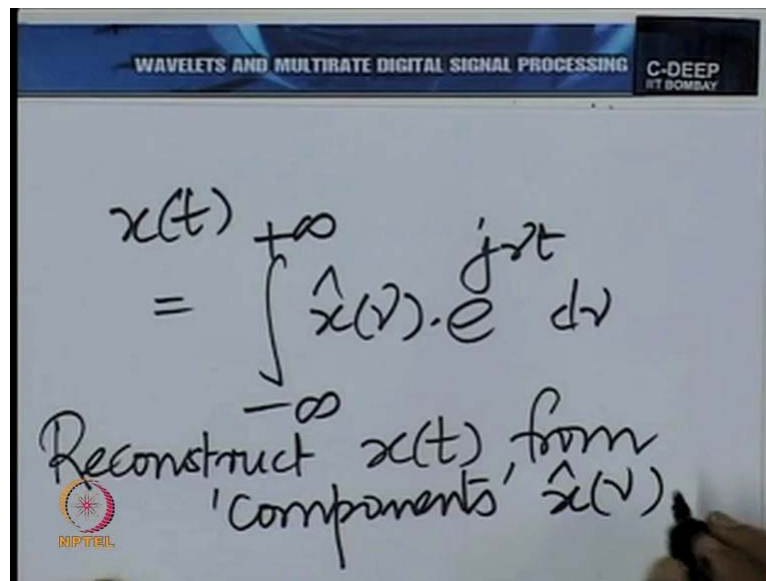 WAVELETS AND MULTIRATE DIGITAL SIGNAL PROCESSING
C-DEEP
IIT BOMBAY
x(t)
= ∫_{-∞}^{+∞} x̂(ν)·e^{jνt} dν
Reconstruct x(t) from
'components' x̂(ν)
NPTEL